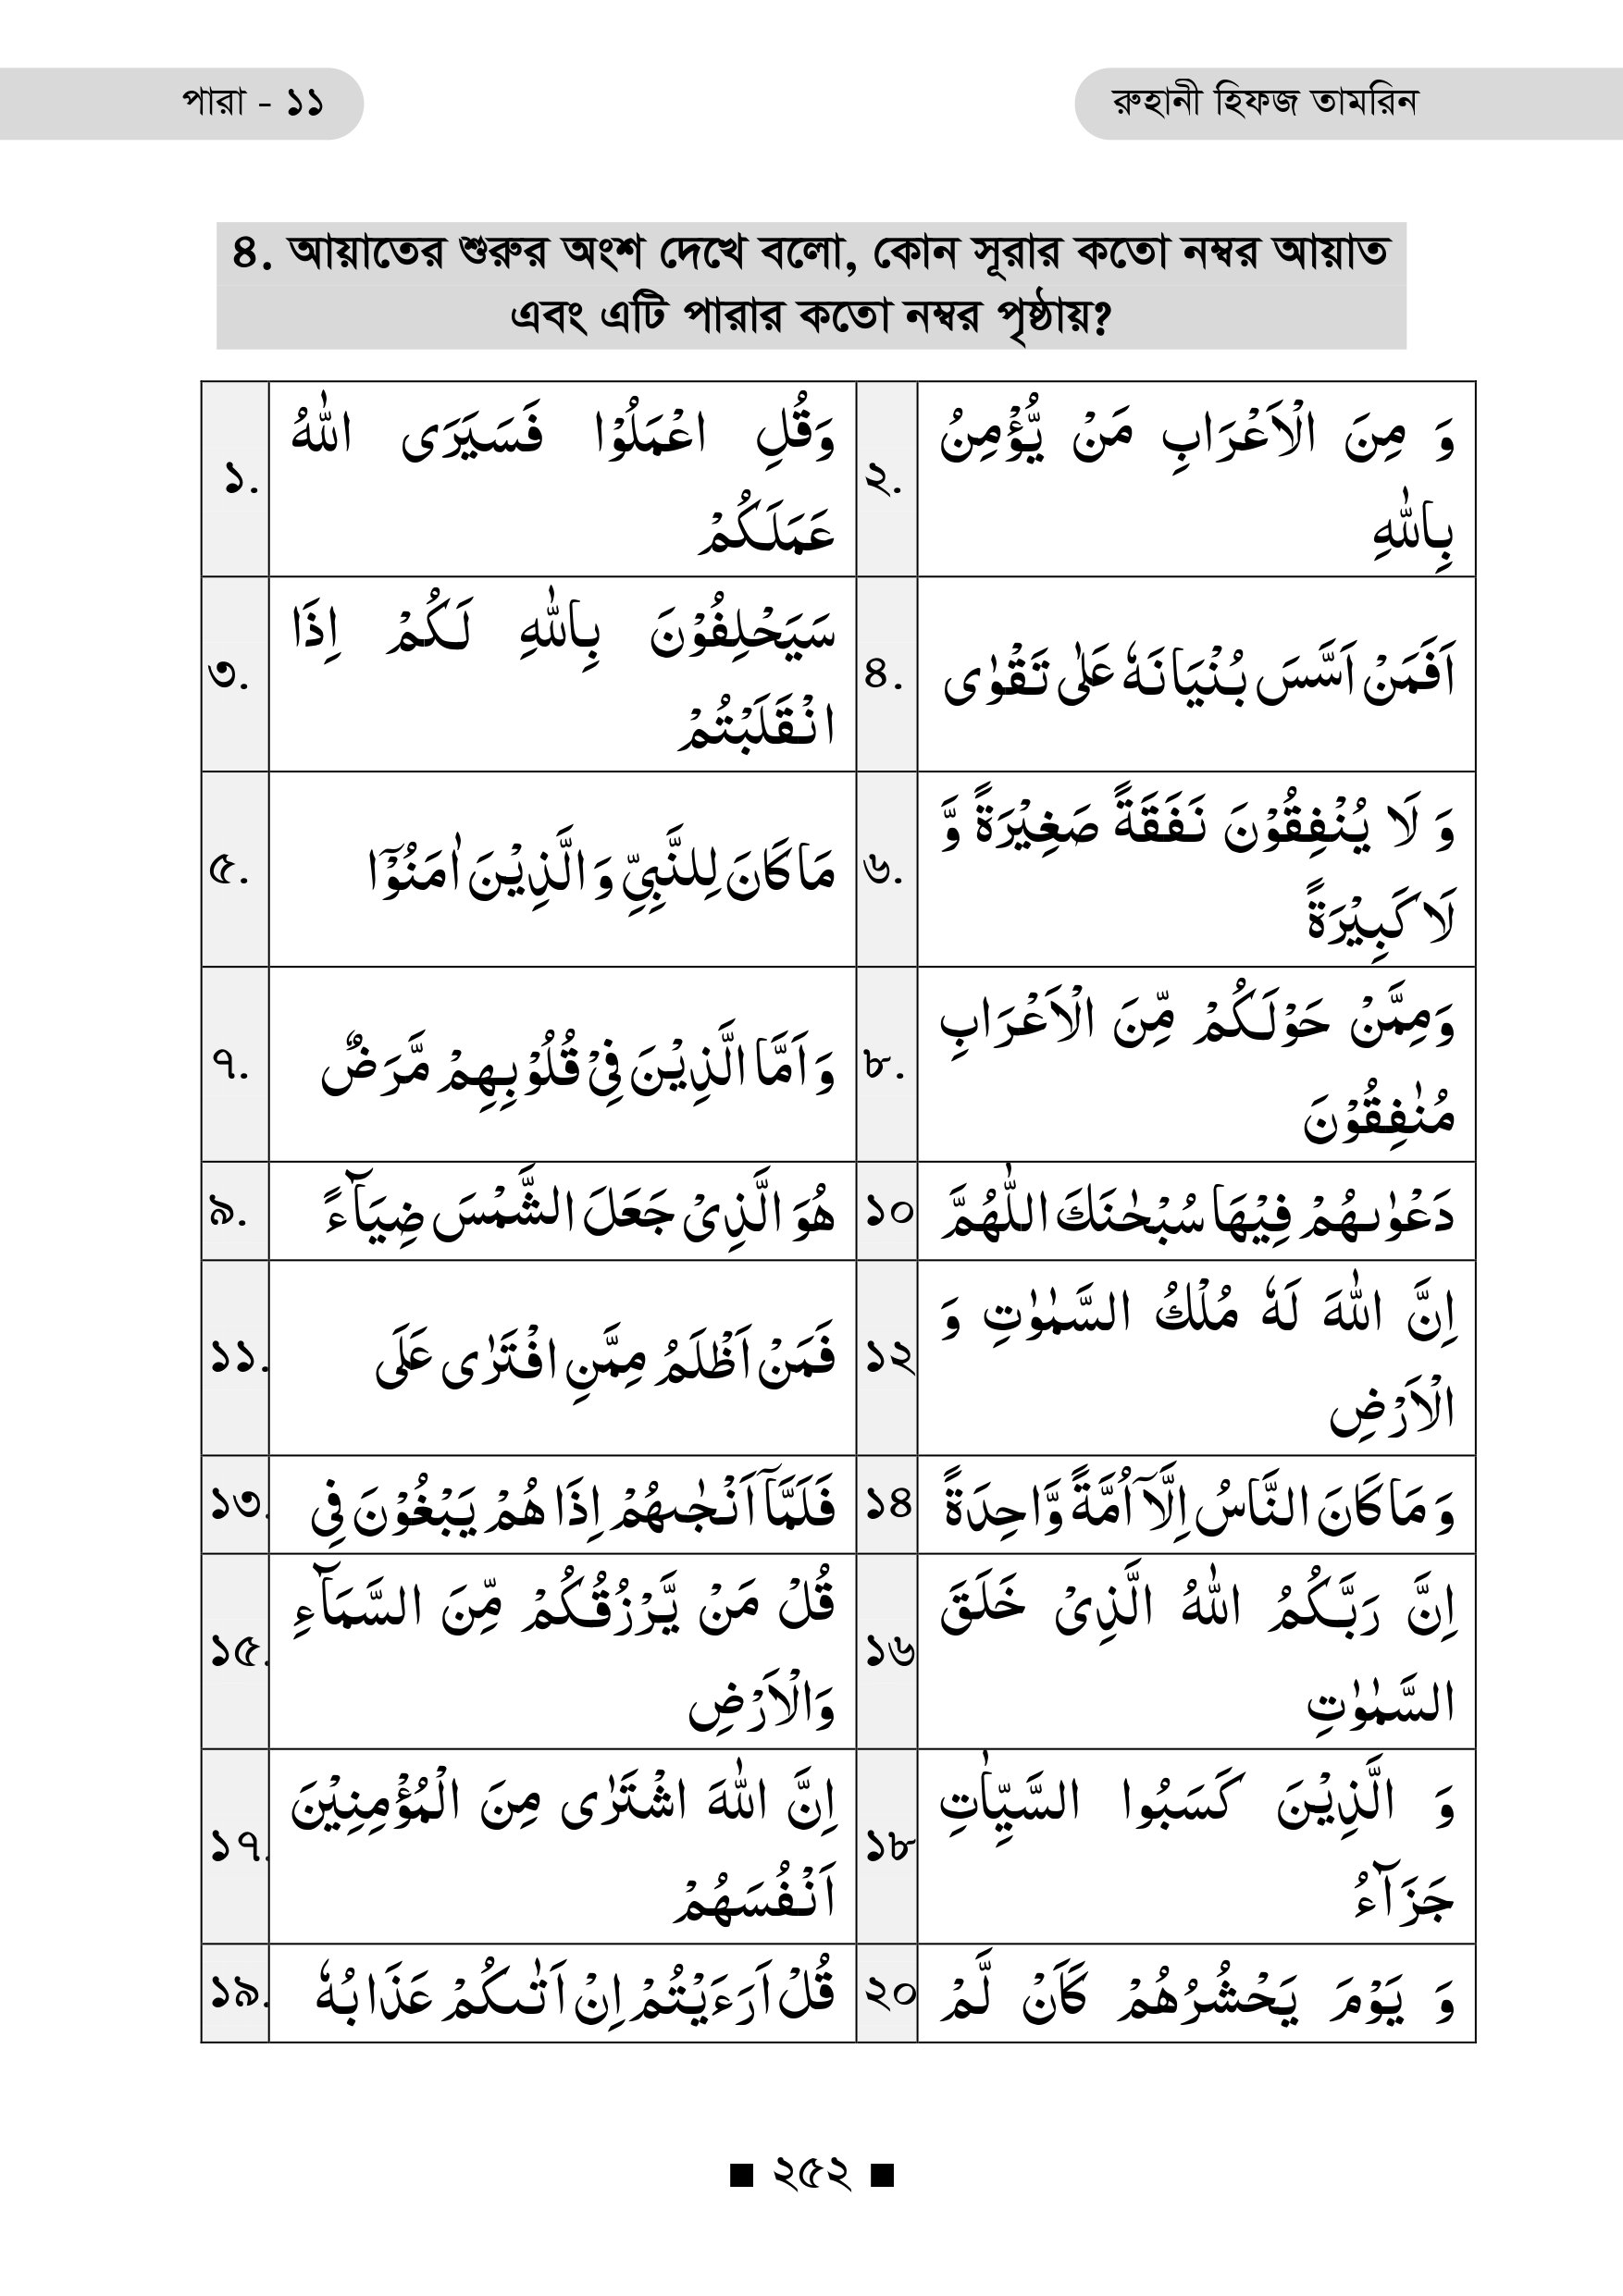 পারা - ১১
রুহানী হিফজ তামরিন
৪. আয়াতের শুরুর অংশ দেখে বলো, কোন সূরার কতো নম্বর আয়াত
এবং এটি পারার কতো নম্বর পৃষ্ঠায়?
১.
وَقُلِ اعْمَلُوْا فَسَيَرَى اللّٰهُ
عَمَلَكُمْ
২.
وَ مِنَ الْاَعْرَابِ مَنْ يُّؤْمِنُ
بِاللّٰهِ
৩.
سَيَحْلِفُوْنَ بِاللّٰهِ لَكُمْ اِذَا
انْقَلَبْتُمْ
৪.
اَفَمَنْ اَسَّسَ بُنْيَانَهٗ عَلٰى تَقْوٰى
৫.
مَا كَانَ لِلنَّبِيِّ وَ الَّذِيْنَ اٰمَنُوْۤا
৬.
وَ لَا يُنْفِقُوْنَ نَفَقَةً صَغِيْرَةً وَّ
لَا كَبِيْرَةً
৭.
وَ اَمَّا الَّذِيْنَ فِيْ قُلُوْبِهِمْ مَّرَضٌ
৮.
وَمِمَّنْ حَوْلَكُمْ مِّنَ الْاَعْرَابِ
مُنٰفِقُوْنَ
৯.
هُوَ الَّذِيْ جَعَلَ الشَّمْسَ ضِيَآءً
১০
دَعْوٰىهُمْ فِيْهَا سُبْحٰنَكَ اللّٰهُمَّ
১১.
فَمَنْ اَظْلَمُ مِمَّنِ افْتَرٰى عَلَى
১২
اِنَّ اللّٰهَ لَهٗ مُلْكُ السَّمٰوٰتِ وَ
الْاَرْضِ
১৩.
فَلَمَّاۤ اَنْجٰىهُمْ اِذَا هُمْ يَبْغُوْنَ فِي
১৪
وَ مَا كَانَ النَّاسُ اِلَّاۤ اُمَّةً وَّاحِدَةً
১৫.
قُلْ مَنْ يَّرْزُقُكُمْ مِّنَ السَّمَآءِ
وَالْاَرْضِ
১৬
اِنَّ رَبَّكُمُ اللّٰهُ الَّذِيْ خَلَقَ
السَّمٰوٰتِ
১৭.
اِنَّ اللّٰهَ اشْتَرٰى مِنَ الْمُؤْمِنِيْنَ
اَنْفُسَهُمْ
১৮
وَ الَّذِيْنَ كَسَبُوا السَّيِّاٰتِ
جَزَآءُ
১৯.
قُلْ اَرَءَيْتُمْ اِنْ اَتٰىكُمْ عَذَابُهٗ
২০
وَ يَوْمَ يَحْشُرُهُمْ كَاَنْ لَّمْ
■ ২৫২ ■